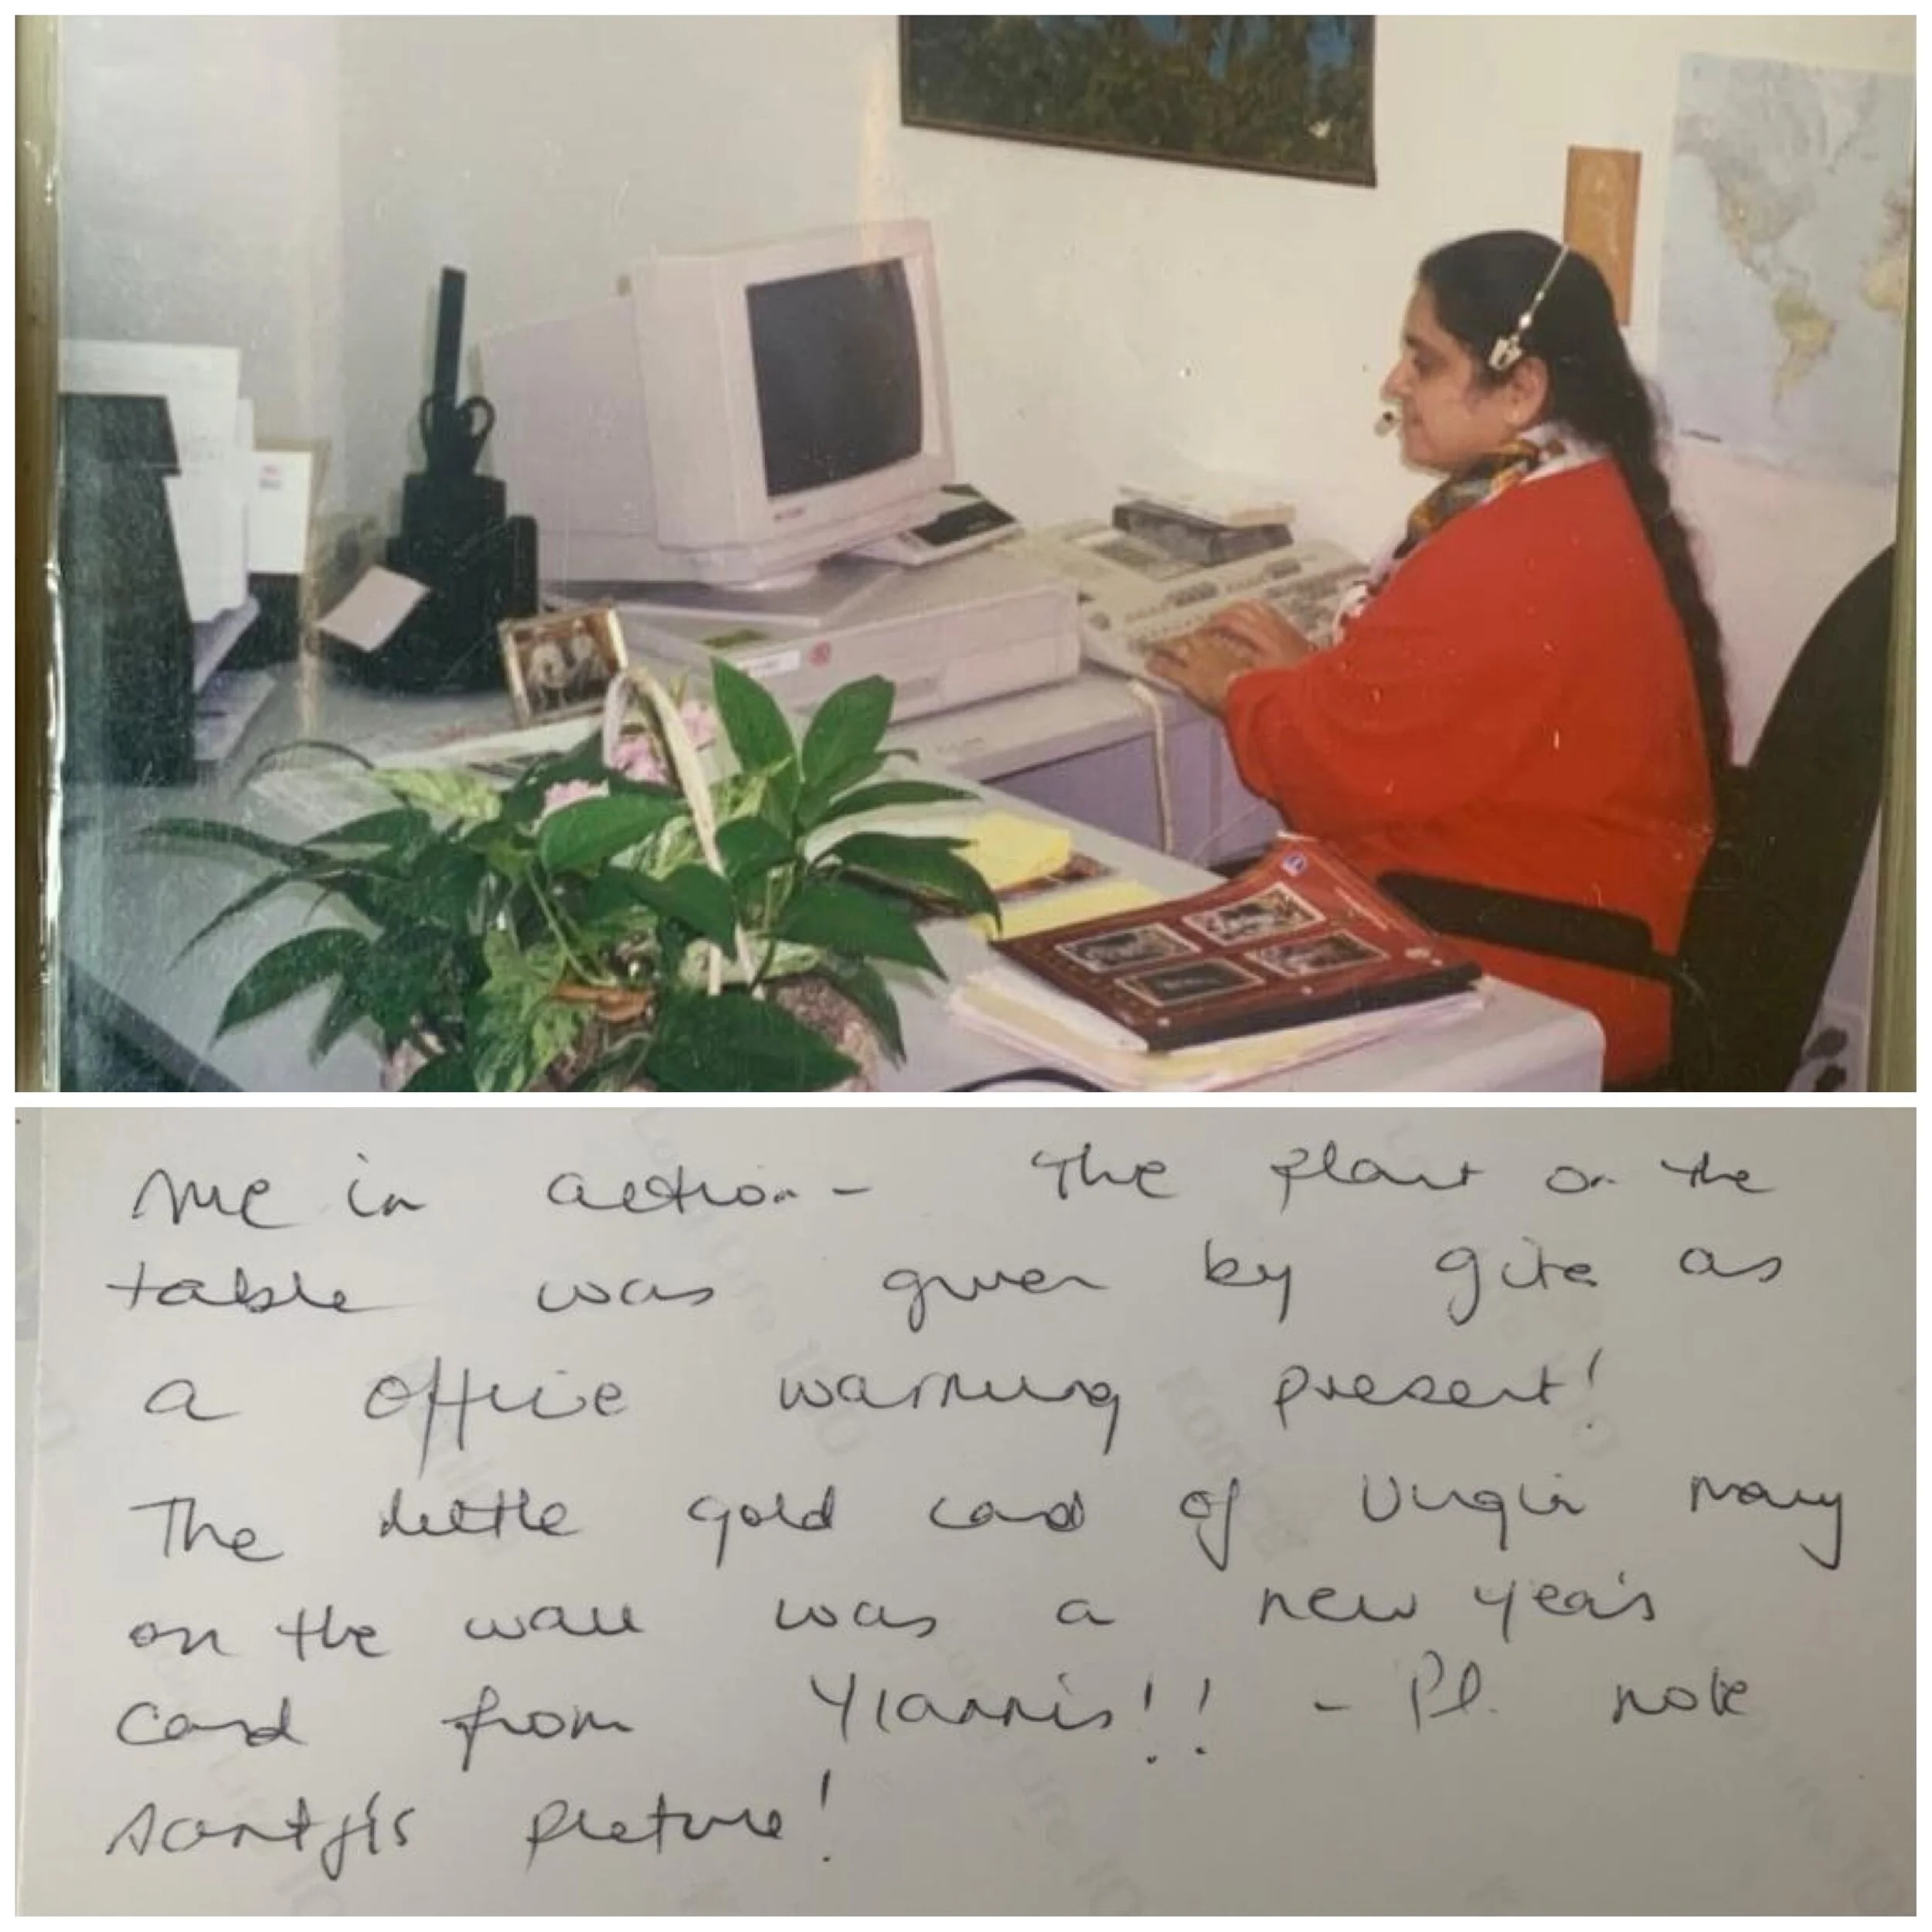 Me in action - The plant on the
table was given by gite as
a office warming present!
The little gold card of Virgin Mary
on the wall was a new year's
card from Yiannis!! - Pl. note
Santji's picture!